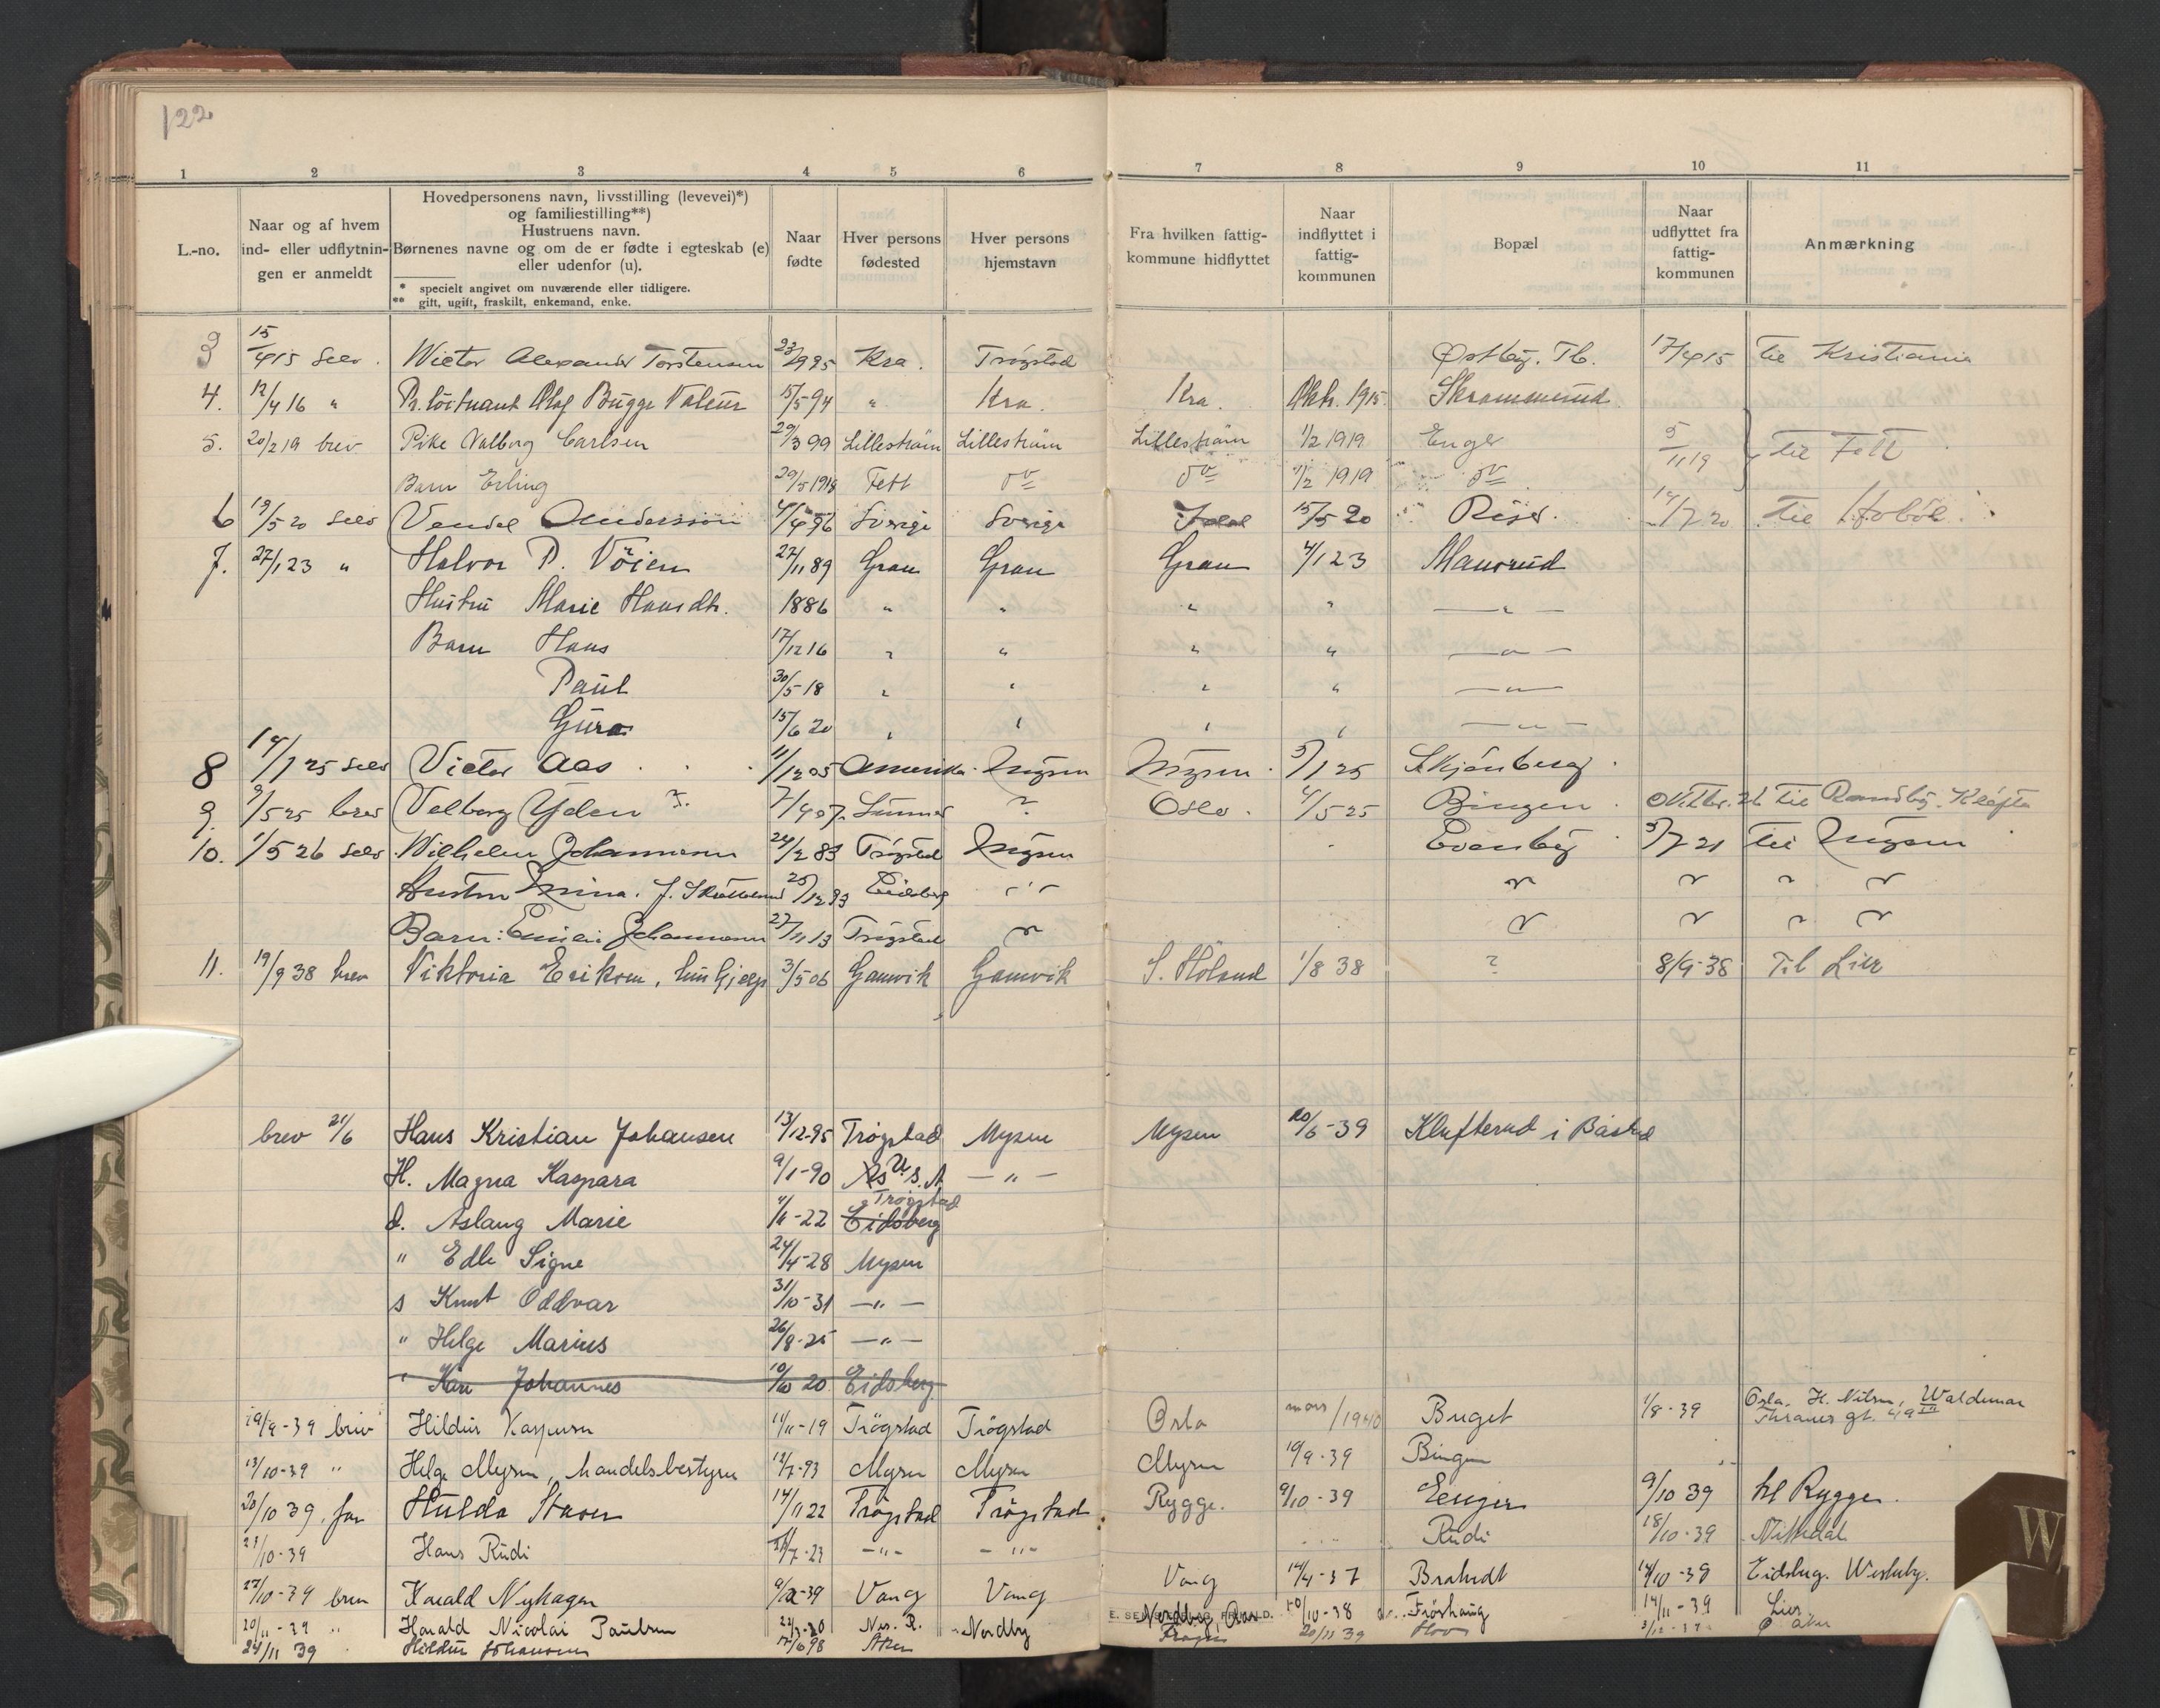 122
1 2 3 4 5 6 7 8 9 10 11
L.-no.
Naar og af hvem
ind- eller udflytnin-
gen er anmeldt
Hovedpersonens navn, livsstilling (levevei)*)
og familiestilling**)
Hustruens navn.
Børnenes navne og om de er fødte i egteskab (e)
eller udenfor (u).
* specielt angivet om nuværende eller tidligere.
** gift, ugift, fraskilt, enkemand, enke.
Naar
fødte
Hver persons
fødested
Hver persons
hjemstavn
Fra hvilken fattig-
kommune hidflyttet
Naar
indflyttet i
fattig-
kommunen
Bopæl
Naar
udflyttet fra
fattig-
kommunen
Anmærkning
3 15/4 15 Selv. Victor Alexander Torstensen Kra. Trøgstad Østby. Tb. 17/4 15 til Kristiania
4. 12/4 16 " Pr. löitnant Olaf Bugge Valeur 15/5 94 " Kra. Kra. Okt. 1915 Skrammerud
5. 20/2 19 brev Pike Valborg Carlsen 29/3 99 Lilleström Lilleström Lilleström 1/2 1919 Enger 5/11 19 til Fett
Barn Erling 29/5 1918 Fett do do 1/2 1919 do
6 19/5 20 selv Vendel Andersson 4/4 96 Sverige Sverige 15/5 20 Riser. 14/7 20 til Hobøl.
7. 27/1 23 " Halvor P. Vöien 27/11 89 Gran Gran Gran 4/1 23 Mansrud
Hustru Marie Hansdtr. 1886 " " " " — " —
Barn Hans 17/12 16 " " " " — " —
Paul 30/5 18 " " " " — " —
Guro 15/6 20 " " " " — " —
8 14/1 25 selv Victor Aas 11/1 205 Amerika Mysen Mysen 5/1 25 Skjönberg
9. 9/5 25 brev Valborg Yden ?. 7/4 07 Lunner ? Oslo. 4/5 25 Bingen Oktbr. 26 til Randby. Kløfta
10. 1/5 26 selv Wilhelm Johannesen 24/2 83 Trøgstad Mysen Evenby 5/7 21 til Mysen
Hustru Mina. f. 25/12 93 Eidsberg " " " " "
Barn: Johannesen 27/11 13 Trøgstad " " " " "
11. 19/9 38 brev Viktoria Erikson, hushjelp 3/5 06 Gamvik Gamvik S. Höland 1/8 38 ? 8/9-38 Til Lier
brev 21/6 Hans Kristian Johansen 13/12-95 Trøgstad Mysen Mysen 20/6-39 Klufterud i Båstad
H. Magna Kaspara 9/1-90 U.S.A. — " —
d. Aslaug Marie 4/11-22 Eidsberg Trøgstad
" Edle Signe 24/4-28 Mysen
s Knut Oddvar 31/10-31 — " —
" Helge Marius 26/8-25 — " —
" Kåre Johannes 10/10 20 Eidsberg
19/9-39 brev Hildur Kaspersen 11/11-19 Trögstad Trögstad Oslo mars/1940 Buget 1/8-39 Oslo, H. Nilsen, Waldemar
Thranes gt. 49 III
13/10-39 " Helge Mysen, handelsbestyrer 12/7-93 Mysen Mysen Mysen 19/9-39 Bingen
20/10 39. far Hulda Staven 14/11 22 Trögstad Trögstad Rygge. 9/10-39 Eenger 9/10 39 til Rygge.
23/10-39 Hans Rudi 21/7-23 — " — — " — Rudi 18/10-39 Nittedal
27/10-39 brev Harald Nyhagen 9/12-39 Vang Vang Vang 14/4-37 Brandt 14/10-39 Eidsberg. Westeby.
20/11-39 " Harald Nicolai Paulsen 22/3-20 Nes. R. Nordby Nordby Aas 10/10-38 Frøshaug 14/11-39 Lier
24/11 39 Hildur Johansen 17/6 98 Aker Frogn 20/11 39 Hov Ø Aker
W